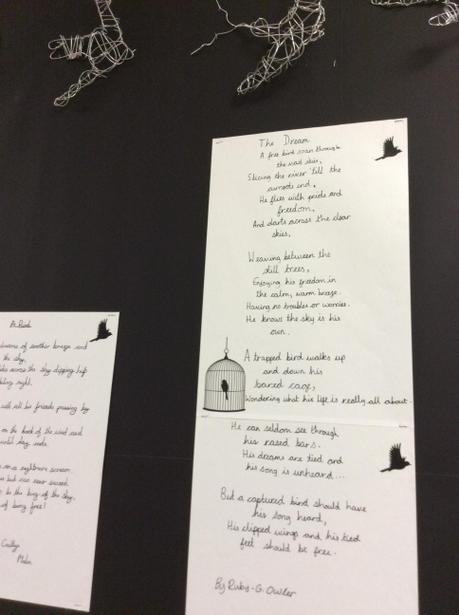 The Dream
A free bird soars through
the vast skies,
Slicing the river 'till the
currents end,
He flies with pride and
freedom,
And darts across the clear
skies,
Weaving between the
still trees,
Enjoying his freedom in
the calm, warm breeze.
Having no troubles or worries.
He knows the sky is his
own.
A trapped bird walks up
and down his
bared cage,
Wondering what his life is really all about.
He can seldom see through
his rased bars.
His dreams are tied and
his song is unheard...
But a captured bird should have
his song heard,
His clipped wings and his tied
feet should be free.
By Ruby-G. Owler
Bird
of another breeze and
the sky,
across the sky dipping left
right.
with all his friends passing by
on the back of the wind and
until day ends.
on a nightmare scream
but
to be the king of the sky,
of being free!